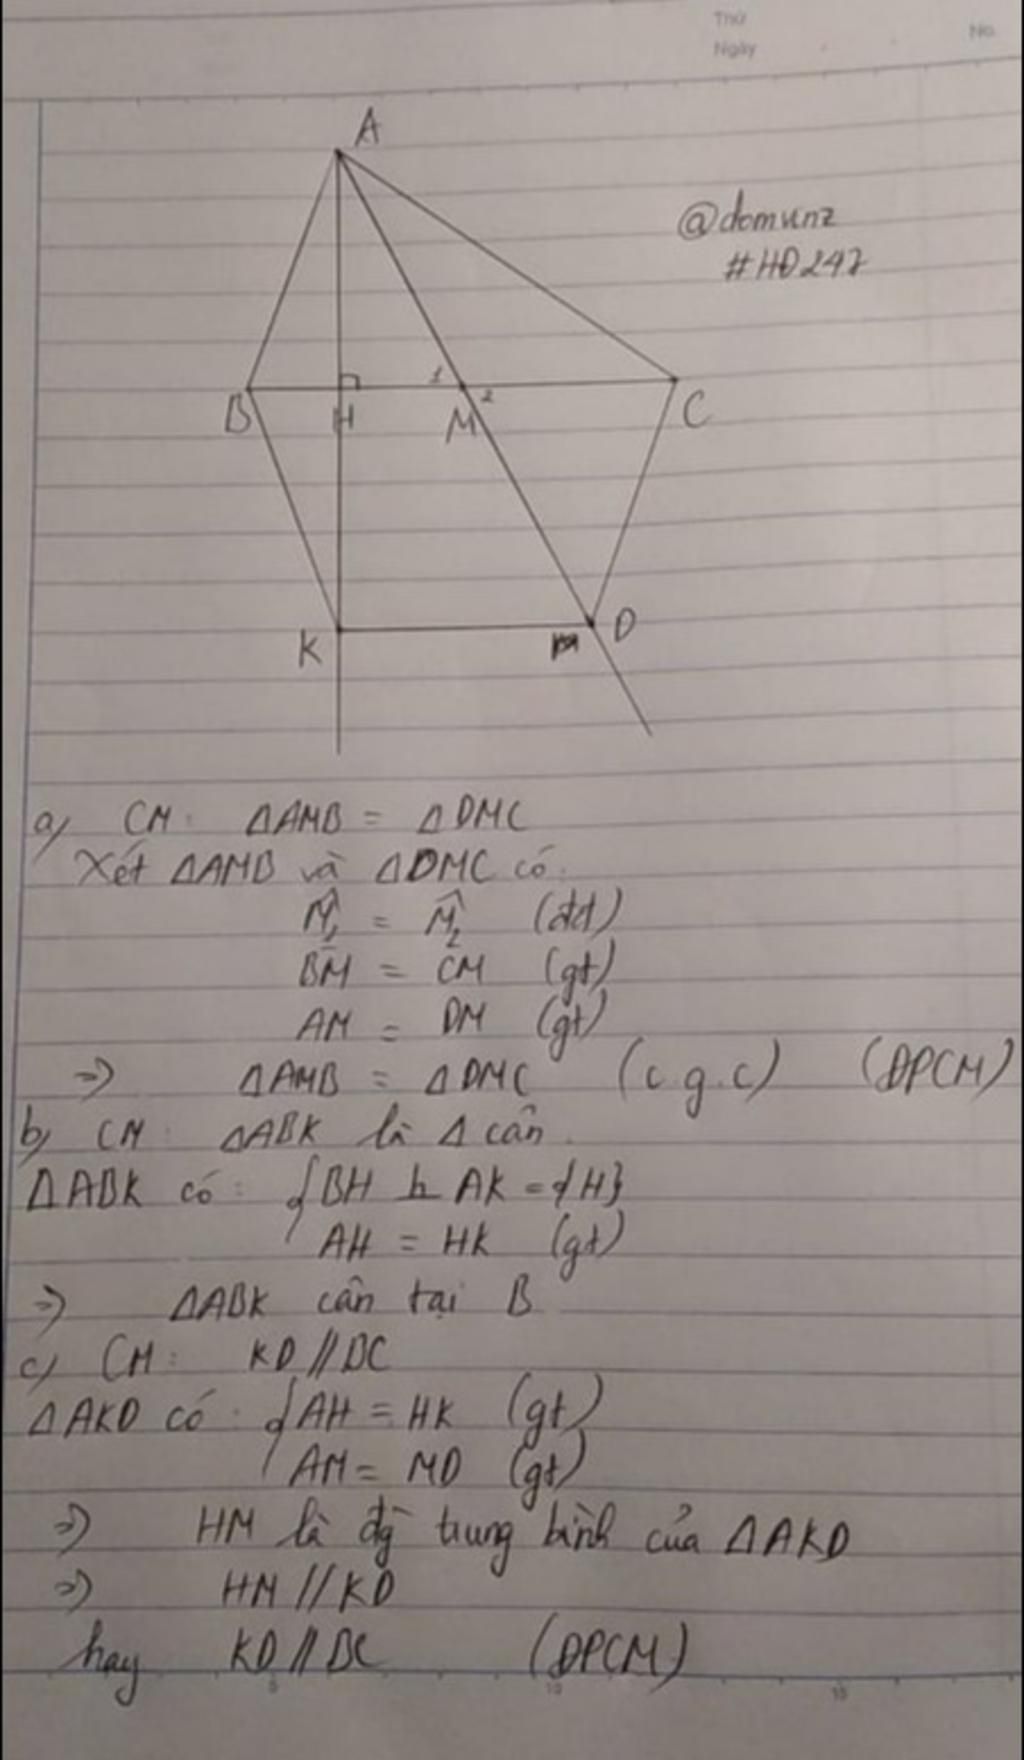 Thứ
No.
Ngày
A
@domvnz
#HĐ247
1
B
H
M
2
C
K
D
a) CM: ΔAMB = ΔDMC
Xét ΔAMB và ΔDMC có:
M̂₁ = M̂₂ (đđ)
BM = CM (gt)
AM = DM (gt)
=> ΔAMB = ΔDMC (c.g.c) (ĐPCM)
b) CM: ΔABK là Δ cân.
ΔABK có: { BH ⊥ AK = {H}
AH = HK (gt)
=> ΔABK cân tại B
c) CM: KD // BC
ΔAKD có: { AH = HK (gt)
AM = MD (gt)
=> HM là đg trung bình của ΔAKD
=> HM // KD
hay KD // BC (ĐPCM)
5 10 15